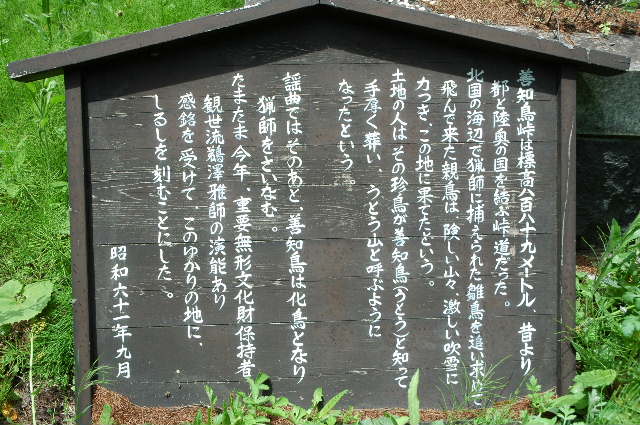 善知鳥峠は標高八百八十九メートル 昔より
都と陸奥の国を結ぶ峠道だった。
北国の海辺で猟師に捕えられた雛鳥を追い求めて
飛んで来た親鳥は、険しい山々、激しい吹雪に
力つき、この地に果てたという。
土地の人は その珍鳥が善知鳥(うとう)と知って
手厚く葬い、うとう山と呼ぶように
なったという。
謡曲ではそのあと、善知鳥は化鳥となり
猟師をさいなむ。
たまたま今年、重要無形文化財保持者
観世流鵜澤雅師の演能あり
感銘を受けて このゆかりの地に、
しるしを刻むことにした。
昭和六十一年九月